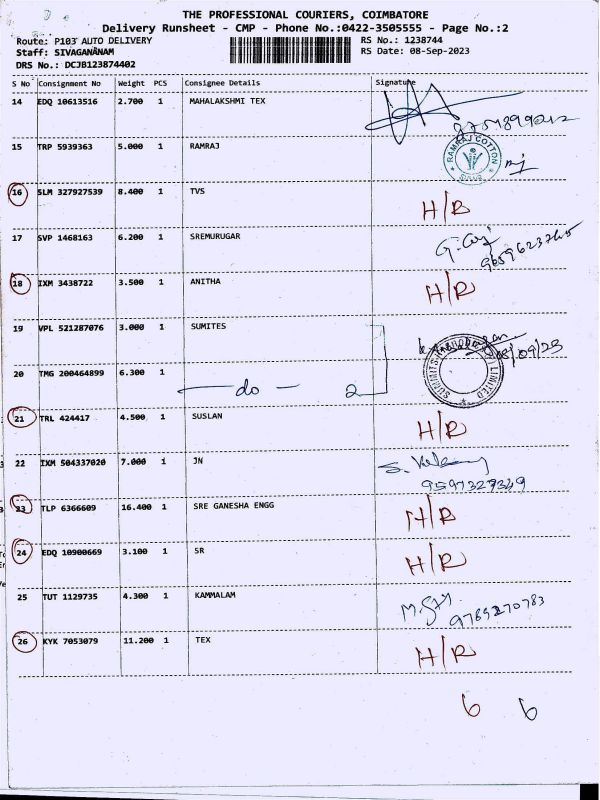 THE PROFESSIONAL COURIERS, COIMBATORE
Delivery Runsheet - CMP - Phone No.:0422-3505555 - Page No.:2
Route: P103 AUTO DELIVERY RS No.: 1238744
Staff: SIVAGANANAM RS Date: 08-Sep-2023
DRS No.: DCJB123874402
S No Consignment No Weight PCS Consignee Details Signature
14 EDQ 10613516 2.700 1 MAHALAKSHMI TEX
15 TRP 5939363 5.000 1 RAMRAJ RAMRAJ COTTON
16 SLM 327927539 8.400 1 TVS H/R
17 SVP 1468163 6.200 1 SREMURUGAR
18 IXM 3438722 3.500 1 ANITHA H/R
19 VPL 521287076 3.000 1 SUMITES 08/09/23
20 TMG 200464899 6.300 1 - do - 2 LIMITED
21 TRL 424417 4.500 1 SUSLAN H/R
22 IXM 504337020 7.000 1 JN
9597327349
23 TLP 6366609 16.400 1 SRE GANESHA ENGG H/R
24 EDQ 10900669 3.100 1 SR H/R
25 TUT 1129735 4.300 1 KAMMALAM 9789270783
26 KYK 7053079 11.200 1 TEX H/R
6 6